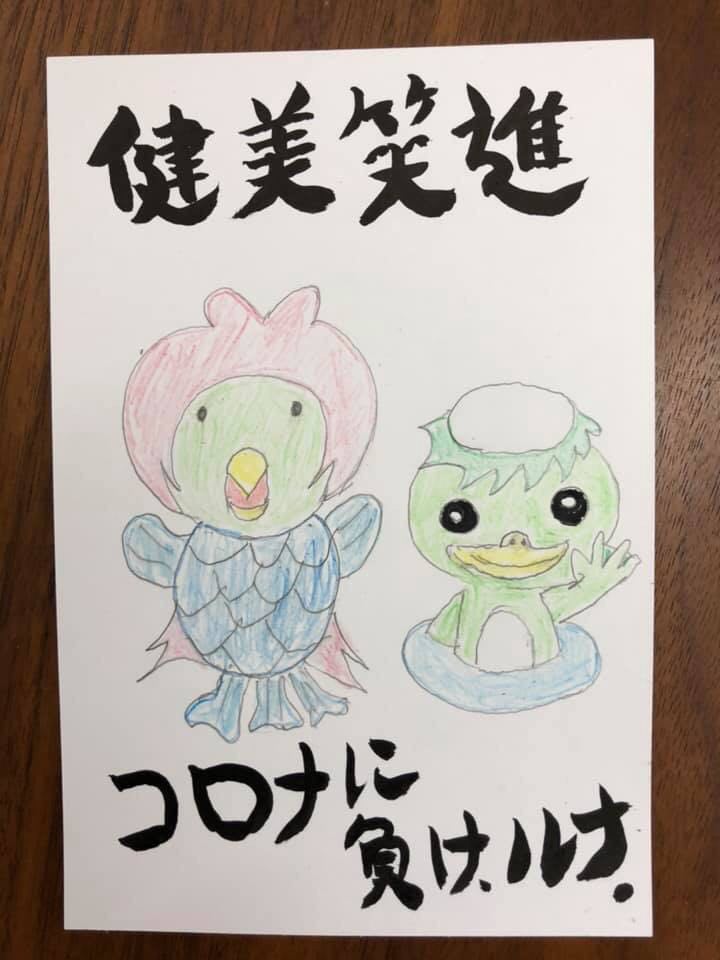 健美笑進
コロナに
負け、ルナ.